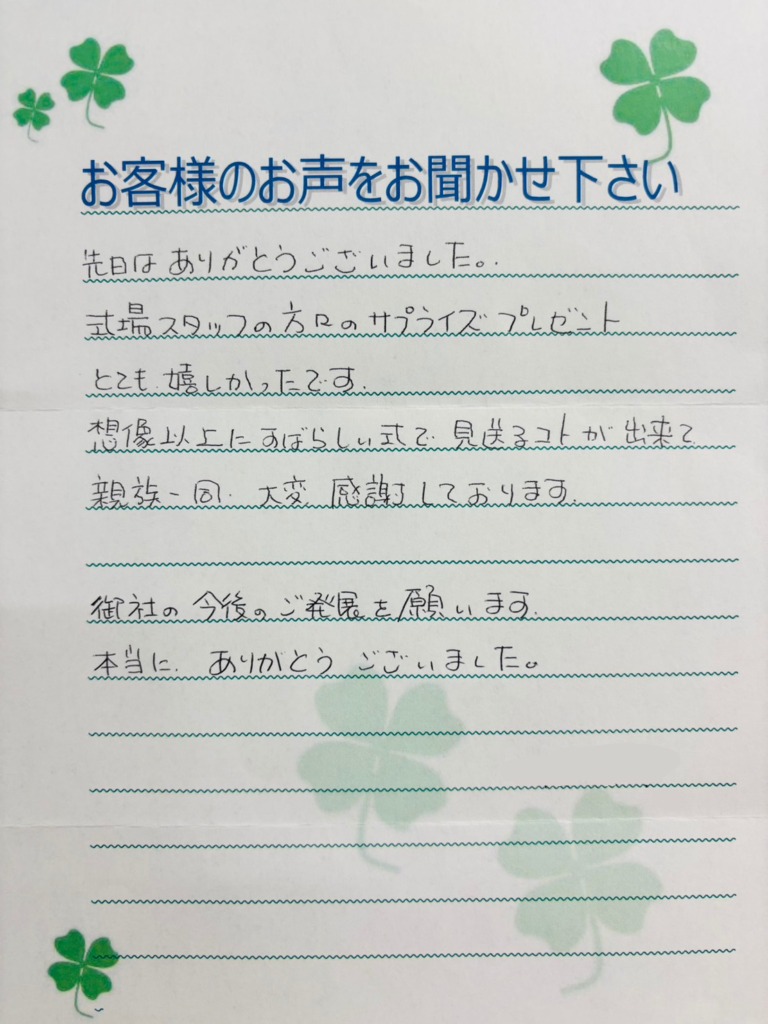 お客様のお声をお聞かせ下さい
先日はありがとうございました。
式場スタッフの方々のサプライズプレゼント
とても嬉しかったです。
想像以上にすばらしい式で見送るコトが出来て
親族一同、大変感謝しております。
御社の今後のご発展を願います。
本当に、ありがとうございました。